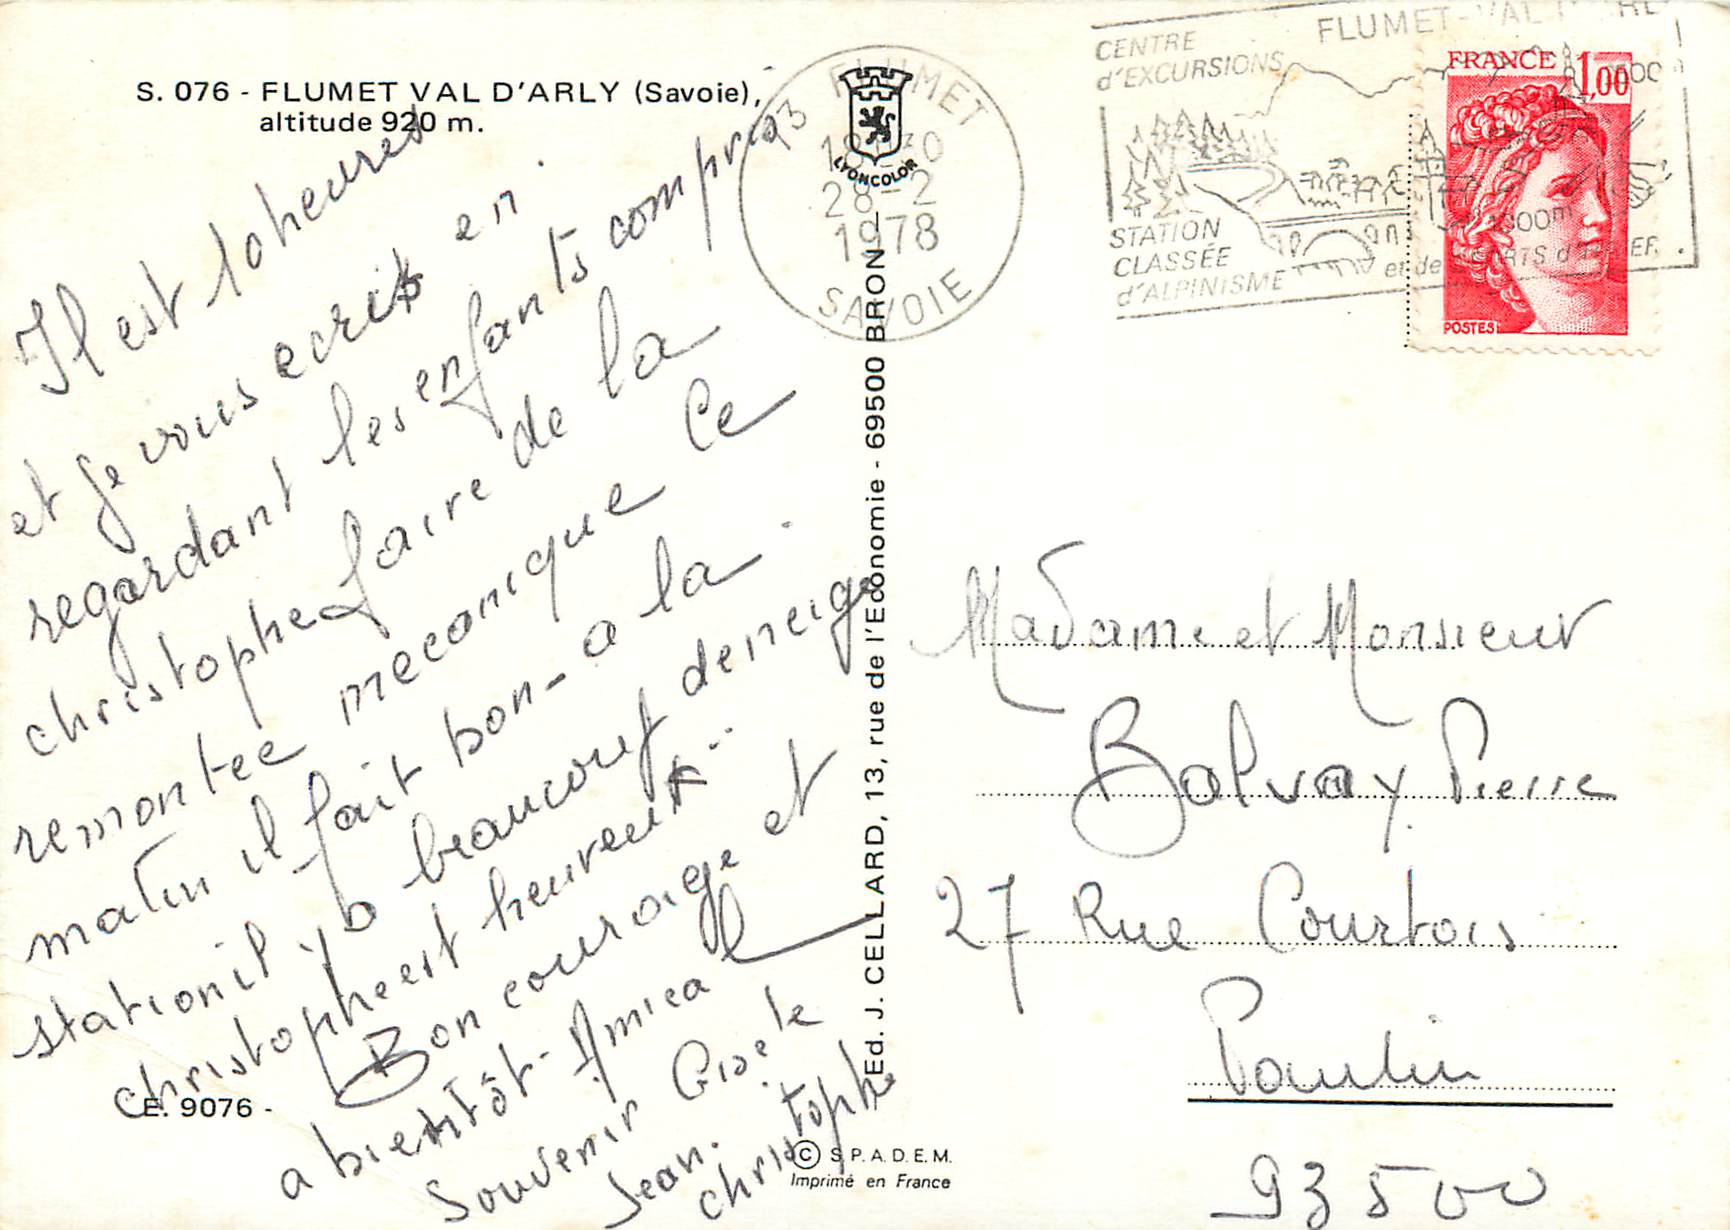 S. 076 - FLUMET VAL D'ARLY (Savoie),
altitude 920 m.
Il est 10 heures
et je vous ecris en
regardant les enfants compris
christophe faire de la
remontee mecanique Ce
matin il fait bon - a la
station il y a beaucoup de neige
christophe est heureux
Bon courage et
a bientôt - Amical
Souvenir Gisele
Jean.
christophe
E. 9076 -
LYONCOLOR
Ed. J. CELLARD, 13, rue de l'Economie - 69500 BRON
© S.P.A.D.E.M.
Imprimé en France
73 FLUMET
18-30
28-2
1978
SAVOIE
FLUMET-VAL D'ARLY
CENTRE
d'EXCURSIONS
STATION
CLASSÉE
d'ALPINISME
et de SPORTS d'HIVER
1800m
FRANCE 1,00
POSTES
Madame et Monsieur
Balvay Pierre
27 Rue Courtois
Pantin
93500